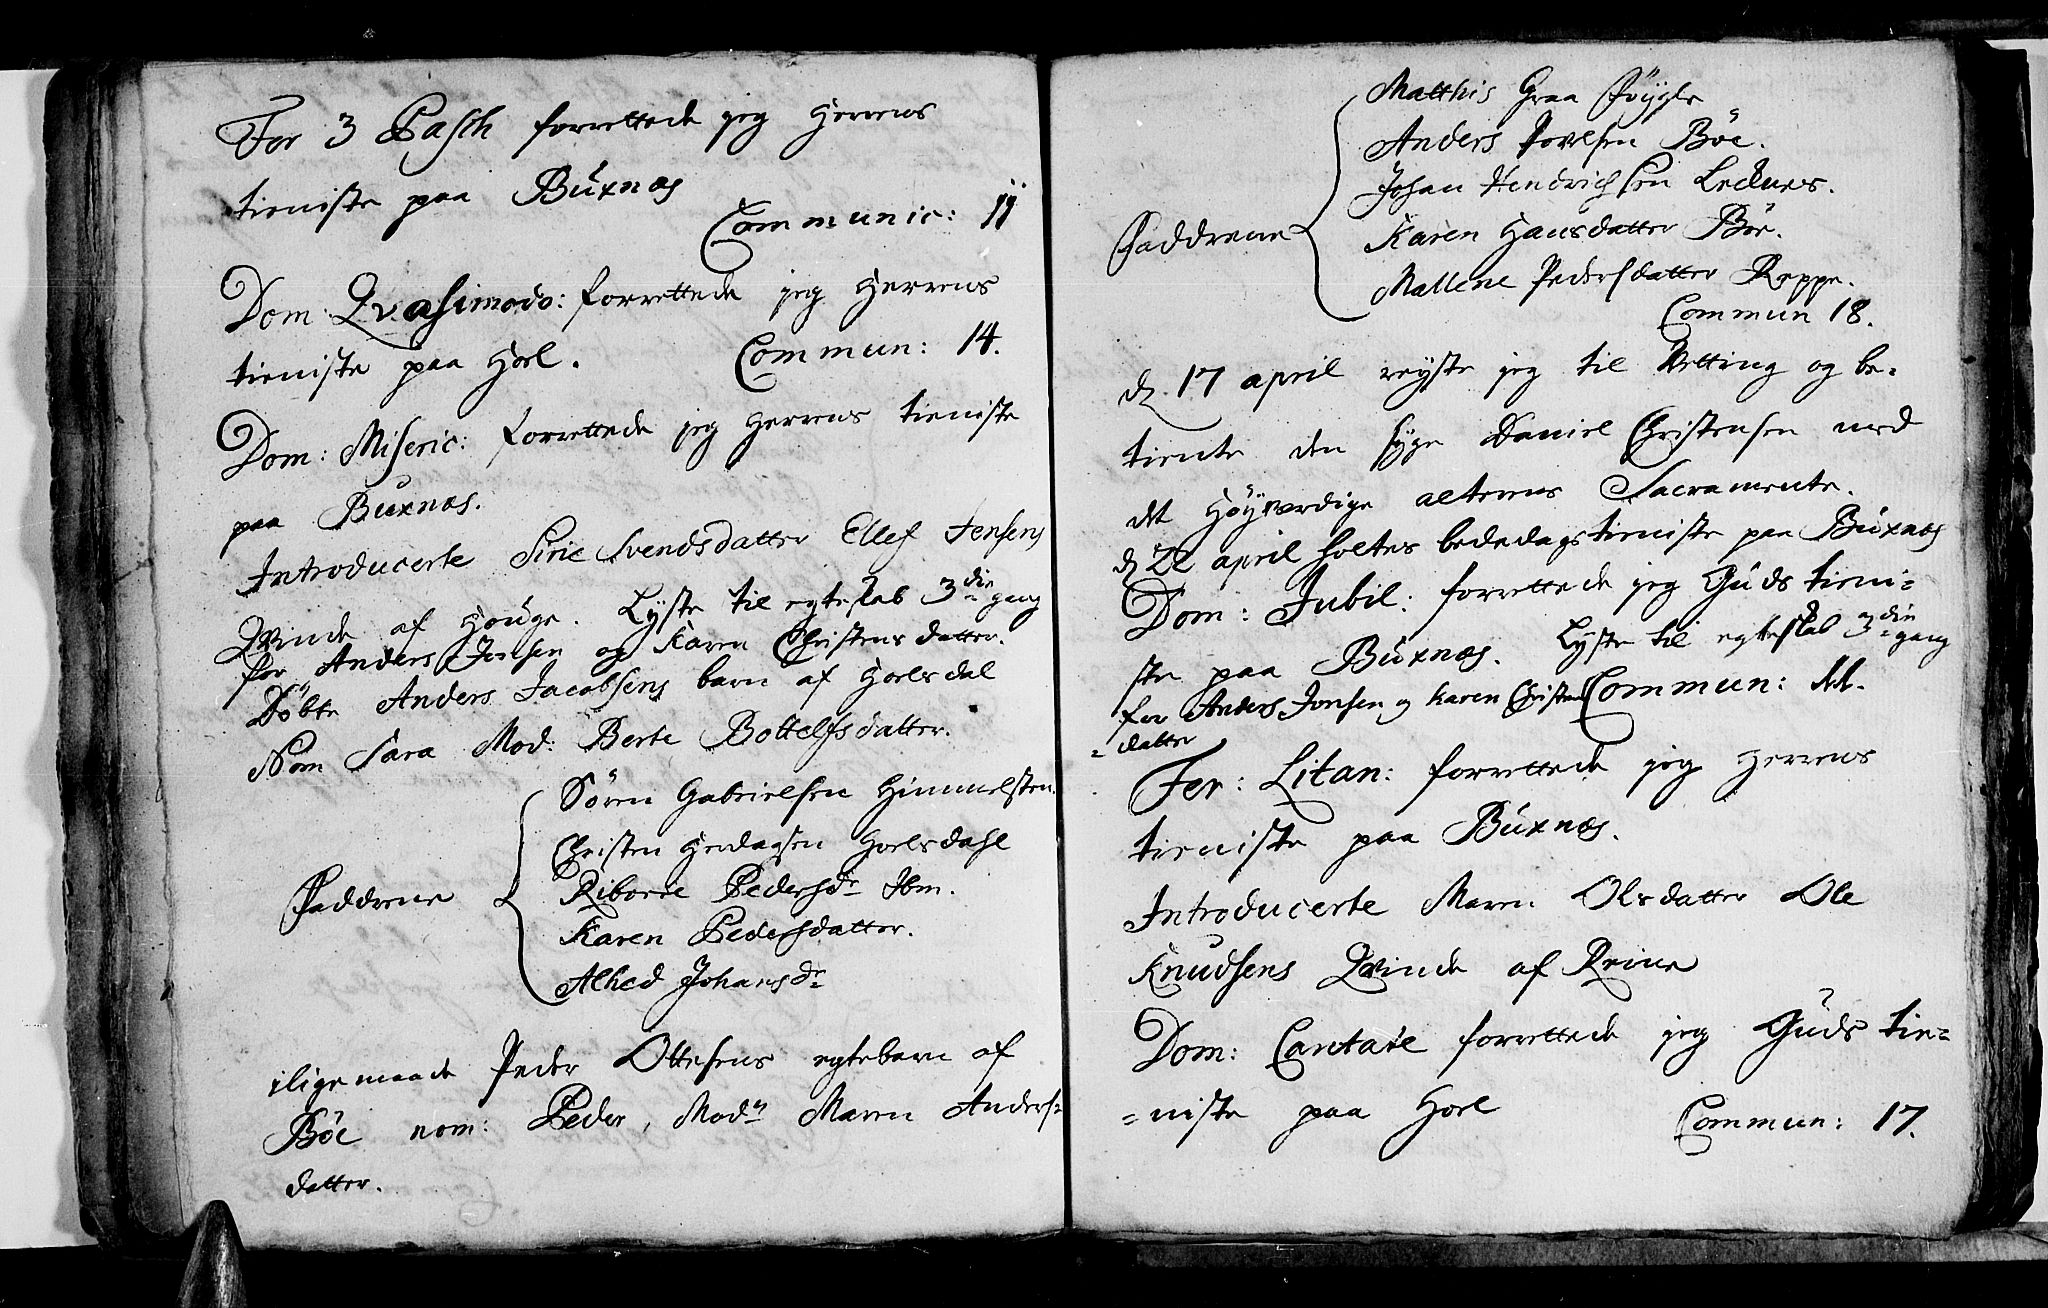 For 3 Pasch forrettede jeg Herrens
tieniste paa Buxnæs
Communic: 11
Dom: Qvasimodo: forrettede jeg Herrens
tieniste paa Hoel.
Commun: 14.
Dom: Miseric: forrettede jeg Herrens tieniste
paa Buxnæs.
Introducerte Sirie Svendsdatter Ellef Jensens
Qvinde af Houge. Lyste til egteskab 3die gang
for Anders Jonsen og Karen Christensdatter.
Døbte Anders Jacobsens barn af Hoelsdal
Nom Sara Mod: Berte Bottelfsdatter.
Faddrene
Søren Gabrielsen Himmelsten
Christen Herdagsen Hoelsdahl
Riborre Pedersdr Ibm.
Karen Pedersdatter.
Alhed Johansdr
iligemaade Peder Ottesens egtebarn af
Böe nom: Peder, Modr Maren Anders-
datter.
Matthis Graa Føygle
Anders Povelsen Böe.
Johan Hendrichsen Lecknes.
Faddrene
Karen Hansdatter Böe.
Mallene Pedersdatter Reppe.
Commun 18.
d. 17 april reyste jeg til Vetting og be-
tiente den syge Daniel Christensen med
det Høyværdige alterens Sacramente.
d. 22 april holtes bededagstieniste paa Buxnæs
Dom: Jubil: forrettede jeg Guds tieni-
ste paa Buxnæs. Lyste til egteskab 3die gang
for Anders Jonsen og Karen Christens
Commun: 22.
-datter
Fer: Litan: forrettede jeg Herrens
tieniste paa Buxnæs.
Introducerte Maren Olsdatter Ole
Knudsens Qvinde af Reine
Dom: Cantate forrettede jeg Guds tie-
-niste paa Hoel
Commun: 17.